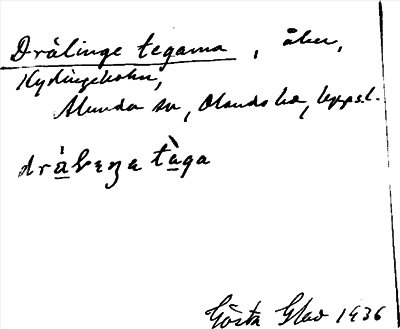 Drälinge tegarna, åker,
Kydingeholm,
Alunda sn, Olands hd, Uppsl.
dräleŋe tàga
Gösta Glad 1936